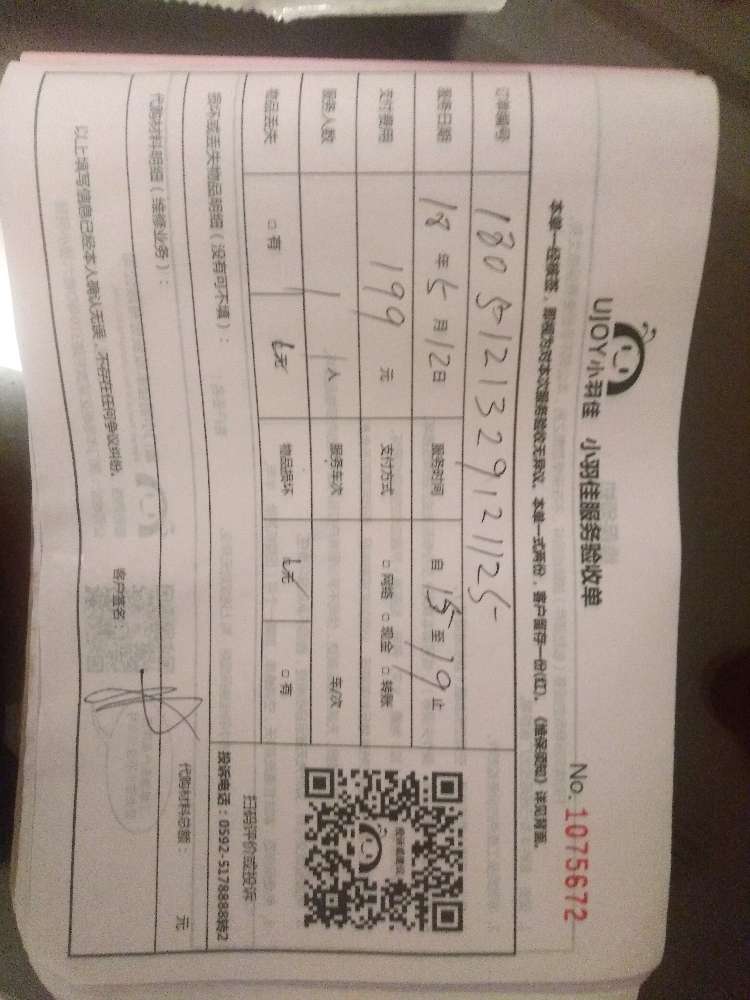 UJOY小羽佳 小羽佳服务验收单
No. 1075672
本单一经核签，即视为对本次服务验收无异议。本单一式两份，客户留存一份(红)。《维保须知》详见背面。
订单编号 1805121329121125
服务日期 18年5月12日 服务时间 自15至19止
支付费用 199元 支付方式 □网络 □现金 □转账
服务人数 1人 服务车次 车/次
物品丢失 □有 无 物品损坏 无 □有
损坏或丢失物品明细（没有可不填）：
扫码评价或投诉
投诉电话：0592-5178888转2
代购材料明细（维修业务）： 代购材料总额： 元
以上填写信息已经本人确认无误，不存在任何争议纠纷。
客户签名：